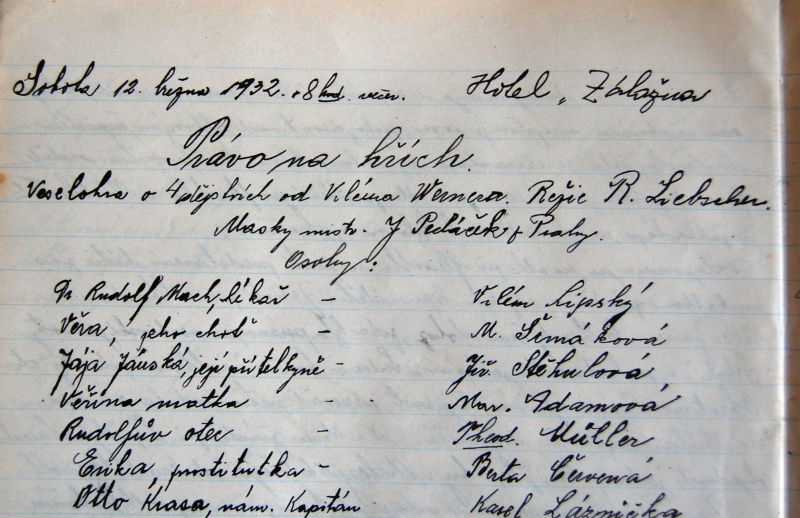 Sobota 12. března 1932. v 8 hod. večer. Hotel „Záložna
Právo na hřích.
Veselohra o 4 dějstvích od Viléma Wernera. Režie R. Liebscher.
Masky mistr. J Pedáček z Prahy.
Osoby:
Dr Rudolf Mach, lékař – Vilém Lipský
Věra, jeho choť – M. Šimáková
Jája Jánská, její přítelkyně – Jiř. Stěhulová
Věřina matka – Mar. Adamová
Rudolfův otec – Theod. Müller
Erika, prostitutka – Berta Červená
Otto Krasa, nám. Kapitán Karel Láznička